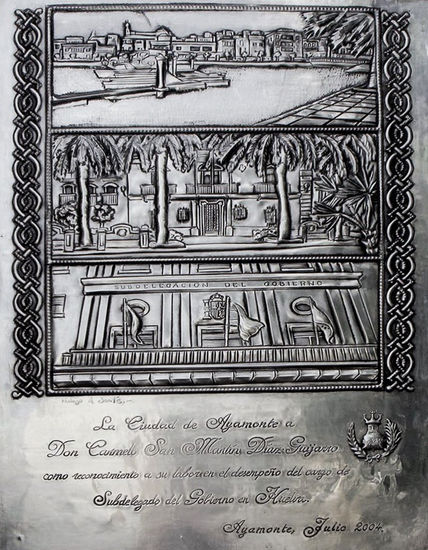 SUBDELEGACION DEL GOBIERNO
La Ciudad de Ayamonte a
Don Carmelo San Martín Díaz-Guijarro
como reconocimiento a su labor en el desempeño del cargo de
Subdelegado del Gobierno en Huelva.
Ayamonte, Julio 2004.